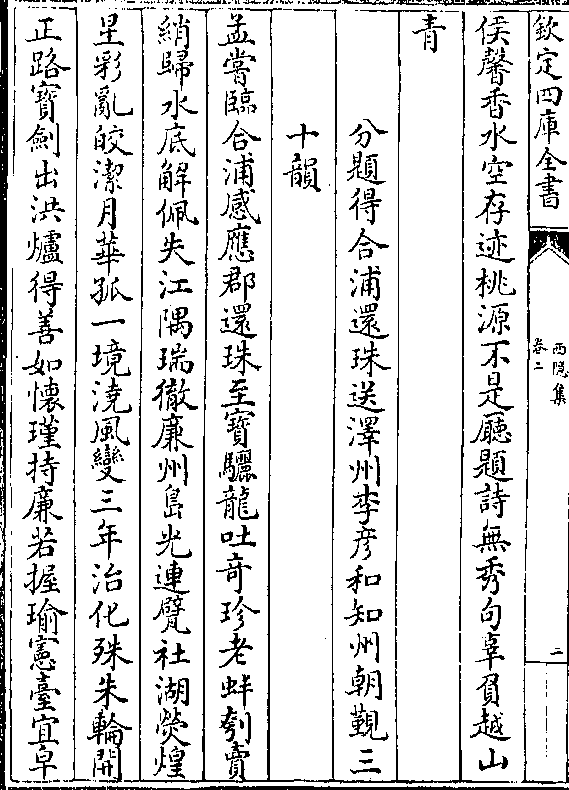 欽定四庫全書
西隠集
卷二
二
侯馨香水空存迹桃源不是廳題詩無秀句辜負越山
青
分題得合浦還珠送澤州李彦和知州朝覲三
十韻
孟嘗臨合浦感應郡還珠至寶驪龍吐竒珍老蚌刳賣
綃歸水底解佩失江隅瑞徹廉州島光連甓社湖熒煌
星彩亂皎潔月華孤一境澆風變三年治化殊朱輪開
正路寳劍出洪爐得善如懷瑾持廉若握瑜憲臺宜卓